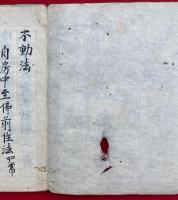 不動法
自房中至佛前作法如常